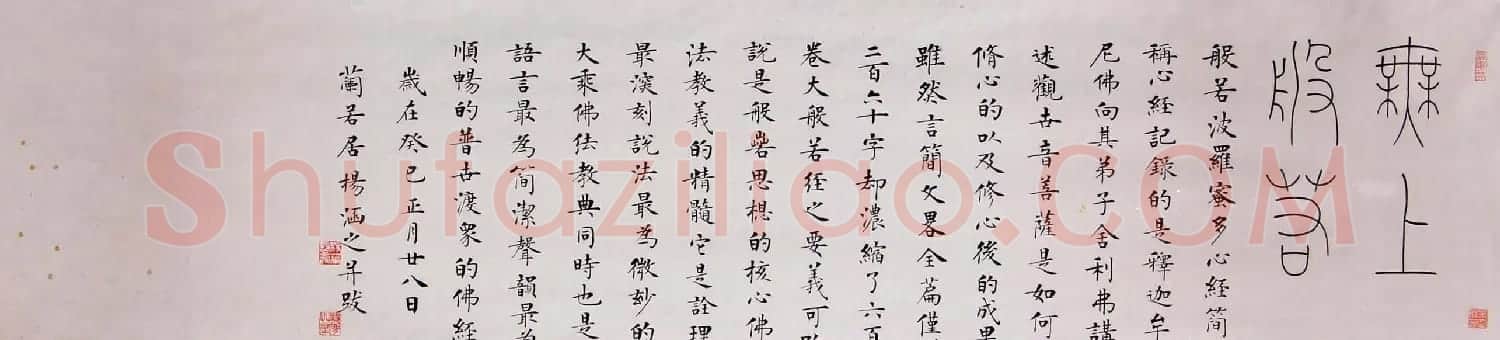 無上
般若
般若波羅蜜多心經简
稱心經記錄的是釋迦牟
尼佛向其弟子舍利弗講
述觀世音菩薩是如何
脩心的以及修心後的成果
雖然言簡文畧全篇僅
二百六十字却濃縮了六百
卷大般若經之要義可
說是般若思想的核心佛
法教義的精髓它是詮理
最深刻說法最為微妙的
大乘佛法教典同時也是
語言最為简潔聲韻最為
順暢的普世渡眾的佛經
歲在癸巳正月廿八日
蘭若居楊涵之并跋
Shufaziliao.COM